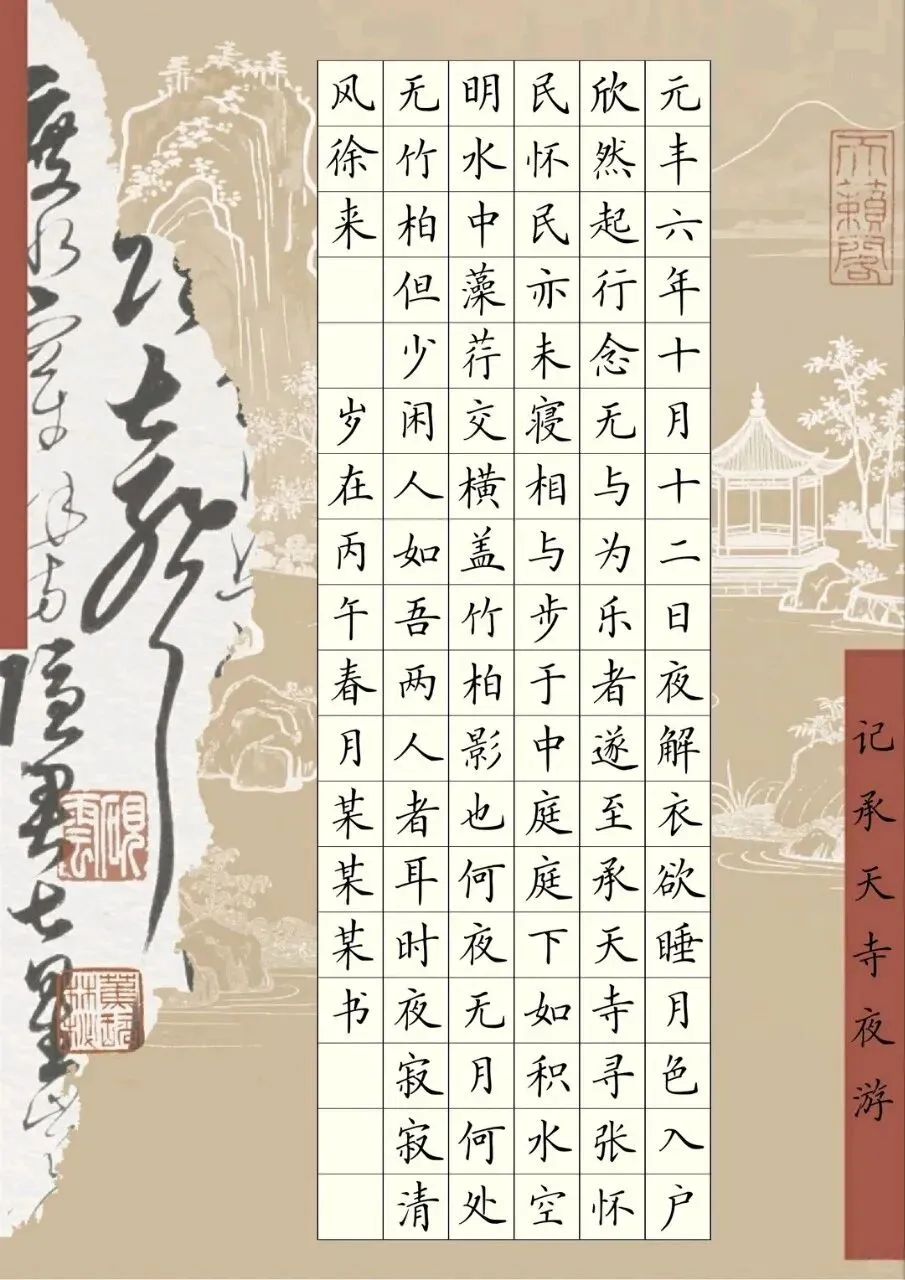 天籟閣
记承天寺夜游
元丰六年十月十二日夜解衣欲睡月色入户
欣然起行念无与为乐者遂至承天寺寻张怀
民怀民亦未寝相与步于中庭庭下如积水空
明水中藻荇交横盖竹柏影也何夜无月何处
无竹柏但少闲人如吾两人者耳时夜寂寂清
风徐来 岁在丙午春月某某某书